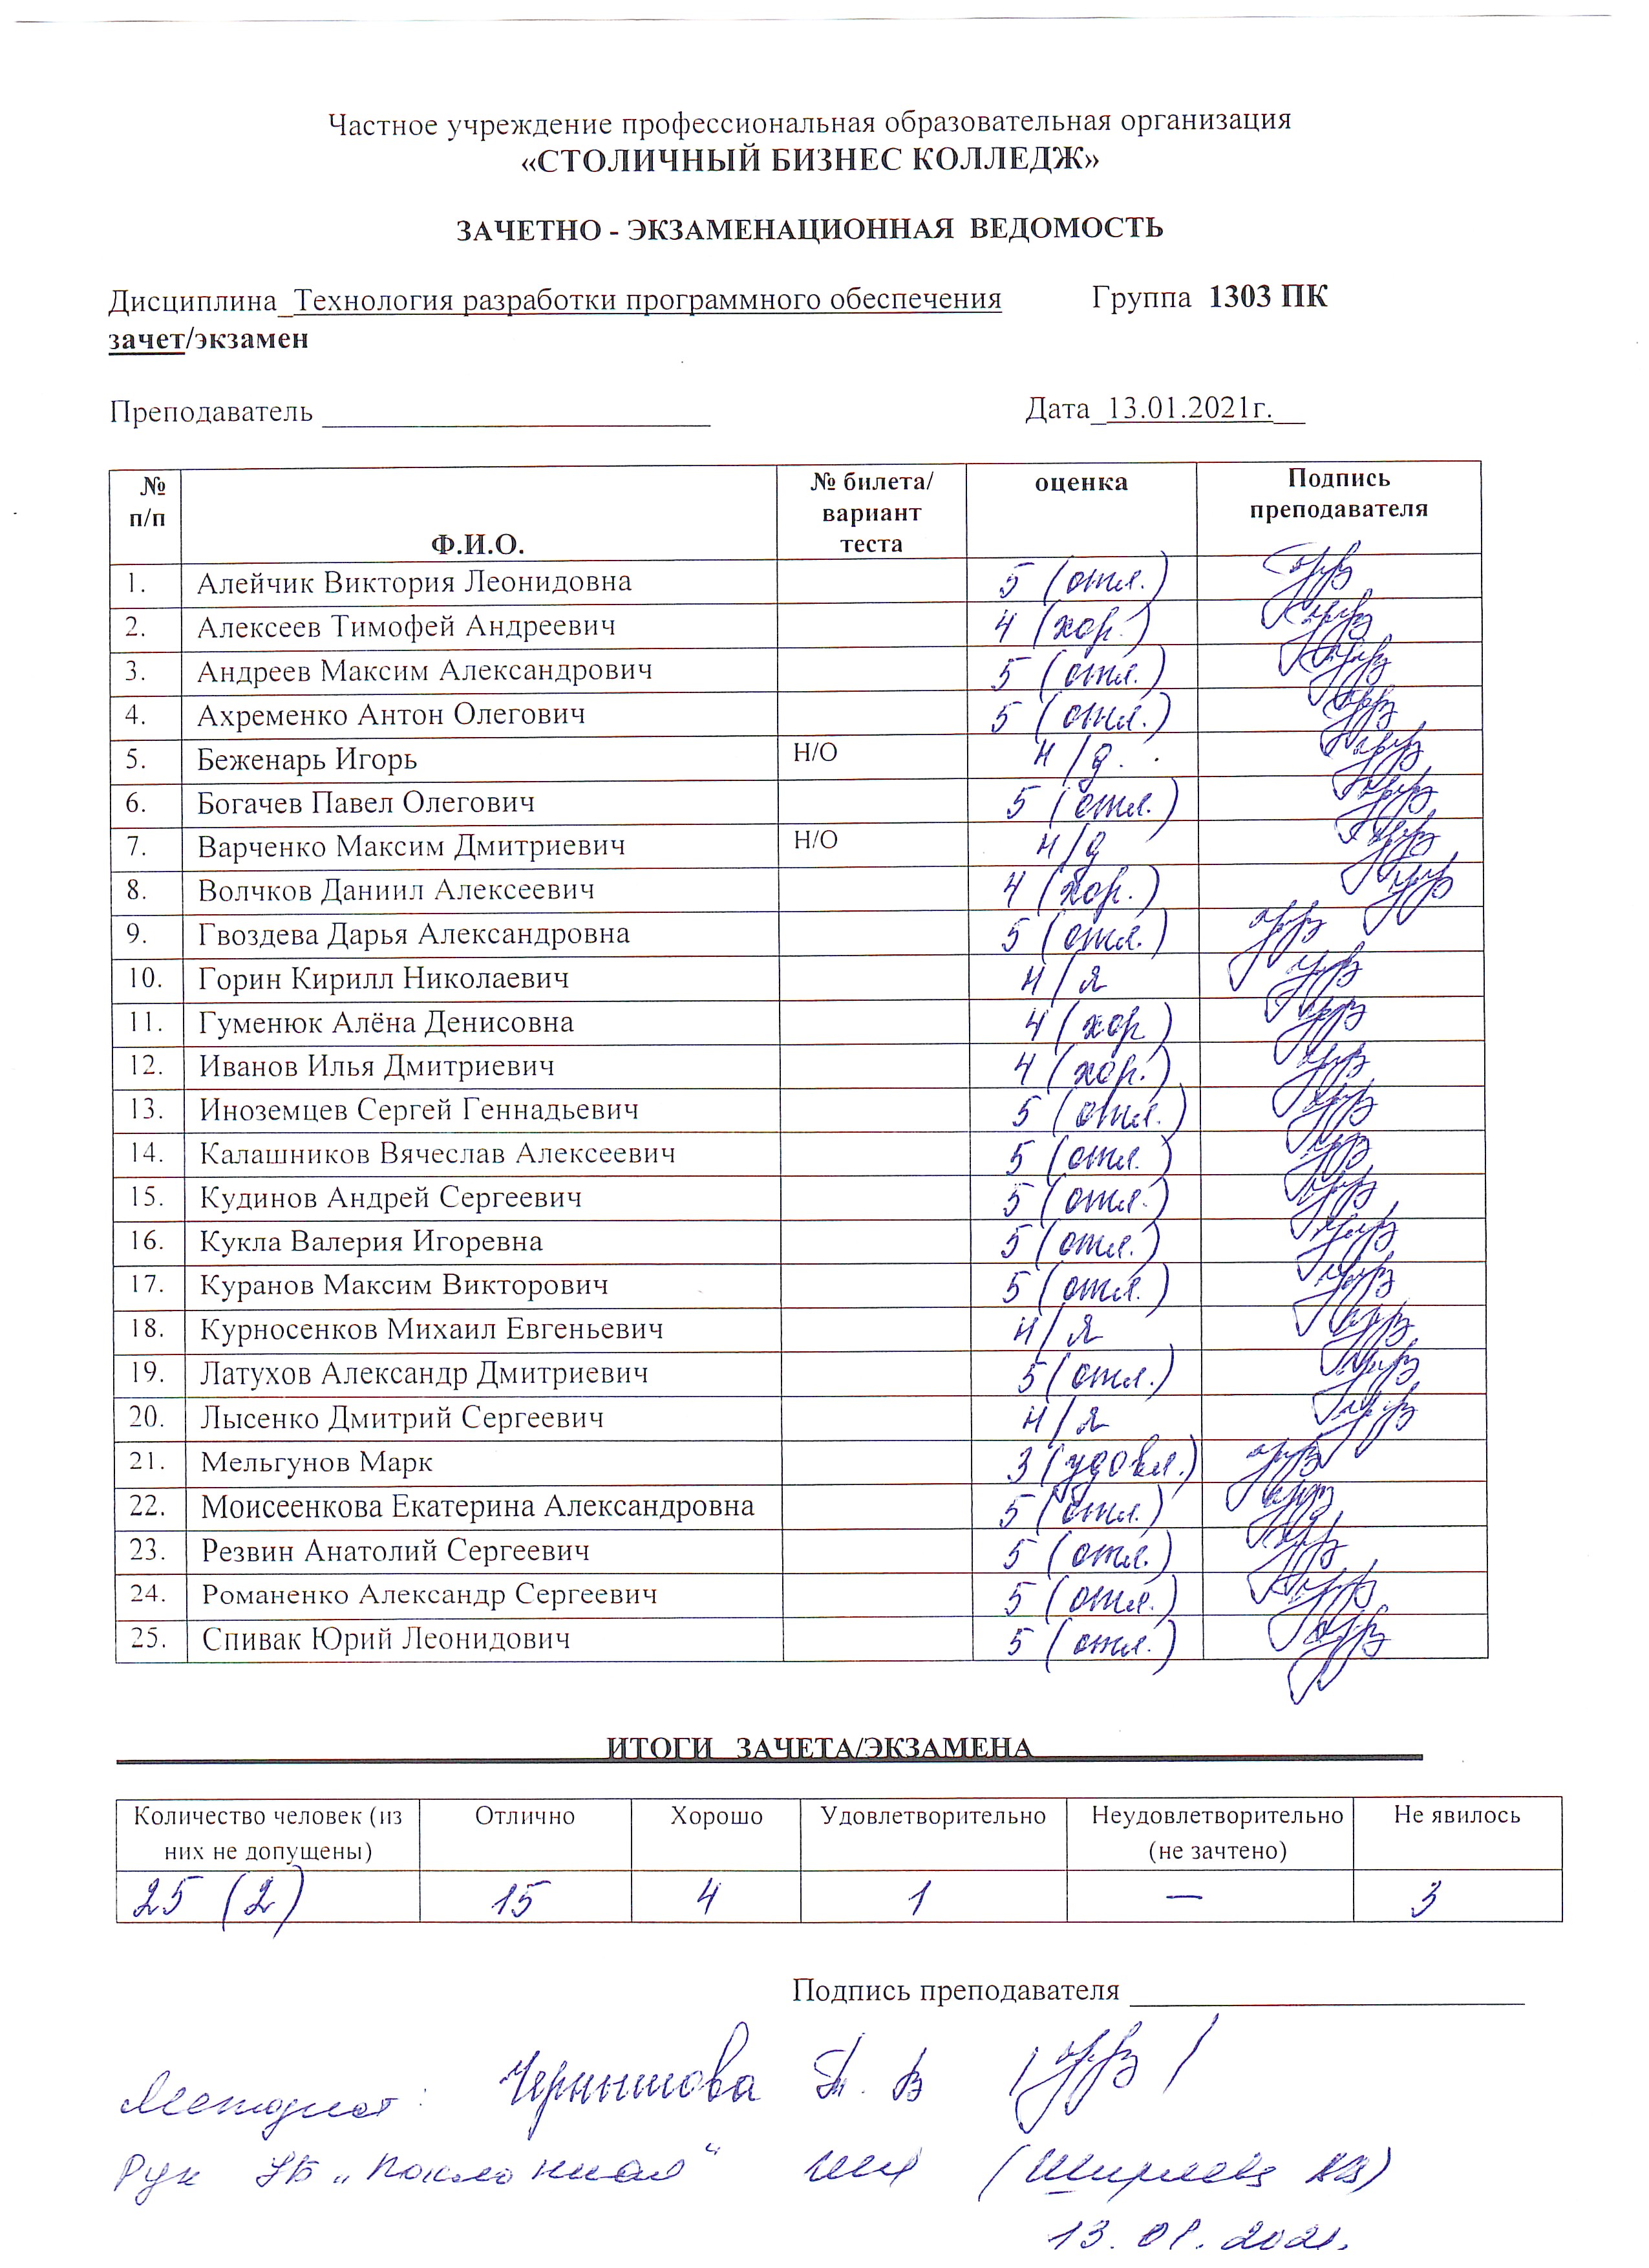 Частное учреждение профессиональная образовательная организация
«СТОЛИЧНЫЙ БИЗНЕС КОЛЛЕДЖ»
ЗАЧЕТНО - ЭКЗАМЕНАЦИОННАЯ ВЕДОМОСТЬ
Дисциплина_Технология разработки программного обеспечения Группа 1303 ПК
зачет/экзамен
Преподаватель Дата_13.01.2021г.
№ п/п Ф.И.О. № билета/ вариант теста оценка Подпись преподавателя
1. Алейчик Виктория Леонидовна 5 (отл.)
2. Алексеев Тимофей Андреевич 4 (хор.)
3. Андреев Максим Александрович 5 (отл.)
4. Ахременко Антон Олегович 5 (отл.)
5. Беженарь Игорь Н/О н/д.
6. Богачев Павел Олегович 5 (отл.)
7. Варченко Максим Дмитриевич Н/О н/д
8. Волчков Даниил Алексеевич 4 (хор.)
9. Гвоздева Дарья Александровна 5 (отл.)
10. Горин Кирилл Николаевич н/я
11. Гуменюк Алёна Денисовна 4 (хор)
12. Иванов Илья Дмитриевич 4 (хор.)
13. Иноземцев Сергей Геннадьевич 5 (отл.)
14. Калашников Вячеслав Алексеевич 5 (отл.)
15. Кудинов Андрей Сергеевич 5 (отл.)
16. Кукла Валерия Игоревна 5 (отл.)
17. Куранов Максим Викторович 5 (отл.)
18. Курносенков Михаил Евгеньевич н/я
19. Латухов Александр Дмитриевич 5 (отл.)
20. Лысенко Дмитрий Сергеевич н/я
21. Мельгунов Марк 3 (удовл.)
22. Моисеенкова Екатерина Александровна 5 (отл.)
23. Резвин Анатолий Сергеевич 5 (отл.)
24. Романенко Александр Сергеевич 5 (отл.)
25. Спивак Юрий Леонидович 5 (отл.)
ИТОГИ ЗАЧЕТА/ЭКЗАМЕНА
Количество человек (из них не допущены) Отлично Хорошо Удовлетворительно Неудовлетворительно (не зачтено) Не явилось
25 (2) 15 4 1 — 3
Подпись преподавателя
Методист: Чернышова Т. В
Рук УБ „Поклонная“
13.01.2021.